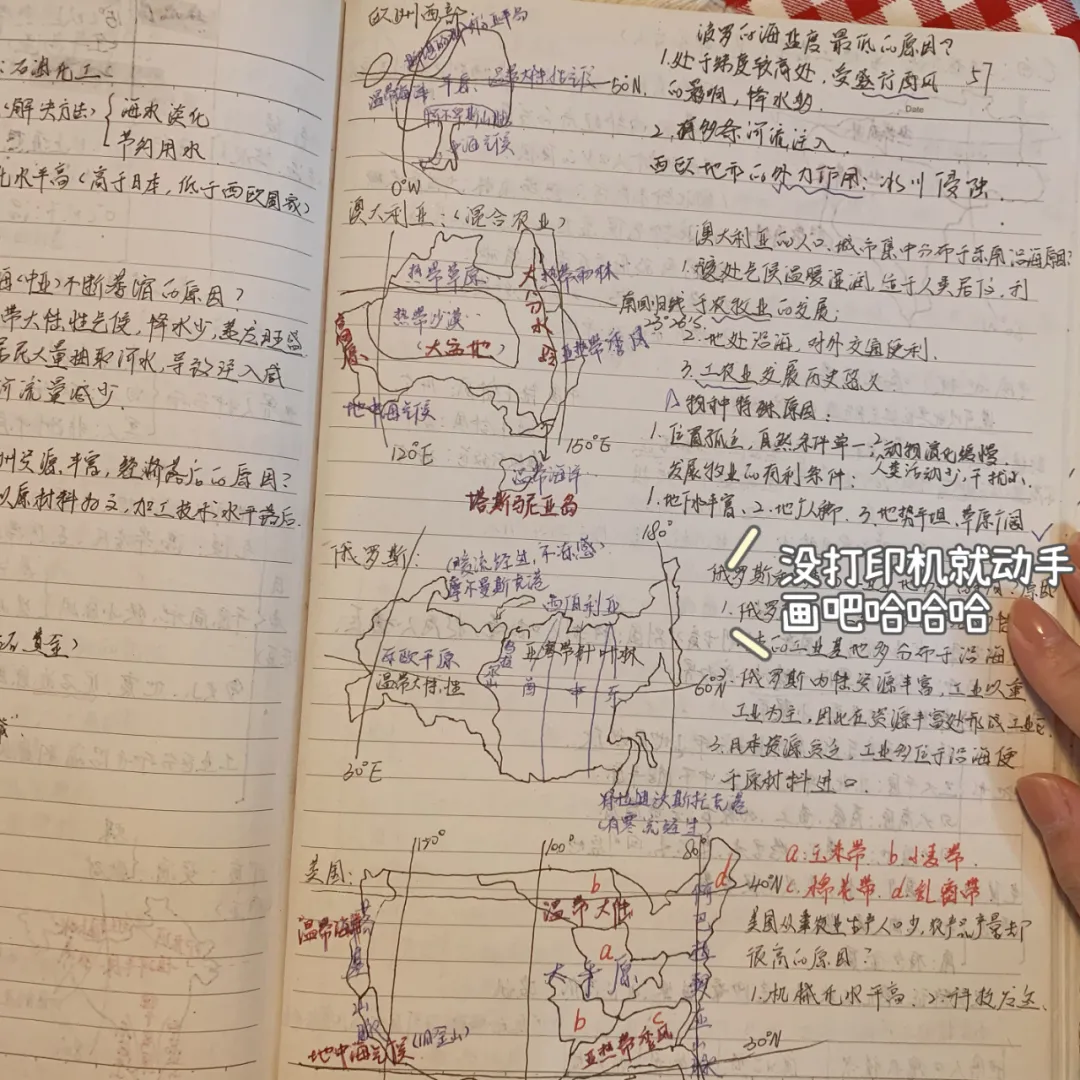 石油化工:
(解决方法) { 海水淡化
节约用水
化水平高(高于日本,低于西欧国家)
海(中亚)不断萎缩的原因?
带大陆性气候,降水少,蒸发旺盛
居民大量抽取河水,导致注入咸
河流量减少.
州资源丰富,经济落后的原因?
以原材料为主,加工技术水平落后.
欧洲西部:
50°N.
阿尔卑斯山脉
地中海气候
0°W
波罗的海盐度最低的原因?
57
Date
1.处于纬度较高处,受盛行西风
的影响,降水多.
2.有多条河流注入.
西欧地形的外力作用:冰川侵蚀.
澳大利亚:(混合农业)
热带草原
大分水岭
热带雨林
热带沙漠
(大盆地)
高原
南回归线
23°26′S.
亚热带季风
地中海气候
120°E
150°E
温带海洋
塔斯马尼亚岛
澳大利亚的人口、城市集中分布于东南沿海原因?
1.该处气候温暖湿润,适于人类居住,利
于农牧业的发展;
2.地处沿海,对外交通便利.
3.工农业发展历史悠久
△物种特殊原因:
1.位置孤立,自然条件单一 2.动物演化缓慢.
人类活动少,干扰小.
发展牧业的有利条件:
1.地下水丰富、2.地广人稀.3.地势平坦,草原广阔
没打印机就动手
画吧哈哈哈
俄罗斯:
(暖流经过,不冻港)
摩尔曼斯克港
180°
西伯利亚
东欧平原
温带大陆性
亚寒带针叶林
西 中 东
60°N
30°E
符拉迪沃斯托克港
(有寒流经过)
俄罗斯
1.俄罗
的工业基地多分布于沿海
2.俄罗斯内陆资源丰富,工业以重
工业为主,因此在资源丰富处形成工业区
3.日本资源贫乏,工业多位于沿海便
于原材料进口.
美国:
100°
80°
温带海洋
温带大陆
b
d
a
大平原
b
c
亚热带季风
地中海气候
(旧金山)
40°N
30°N
a:玉米带 b.小麦带.
c.棉花带 d.乳畜带
美国从事农业生产人口少,农产品产量却
很高的原因?
1.机械化水平高、2.科技发达.